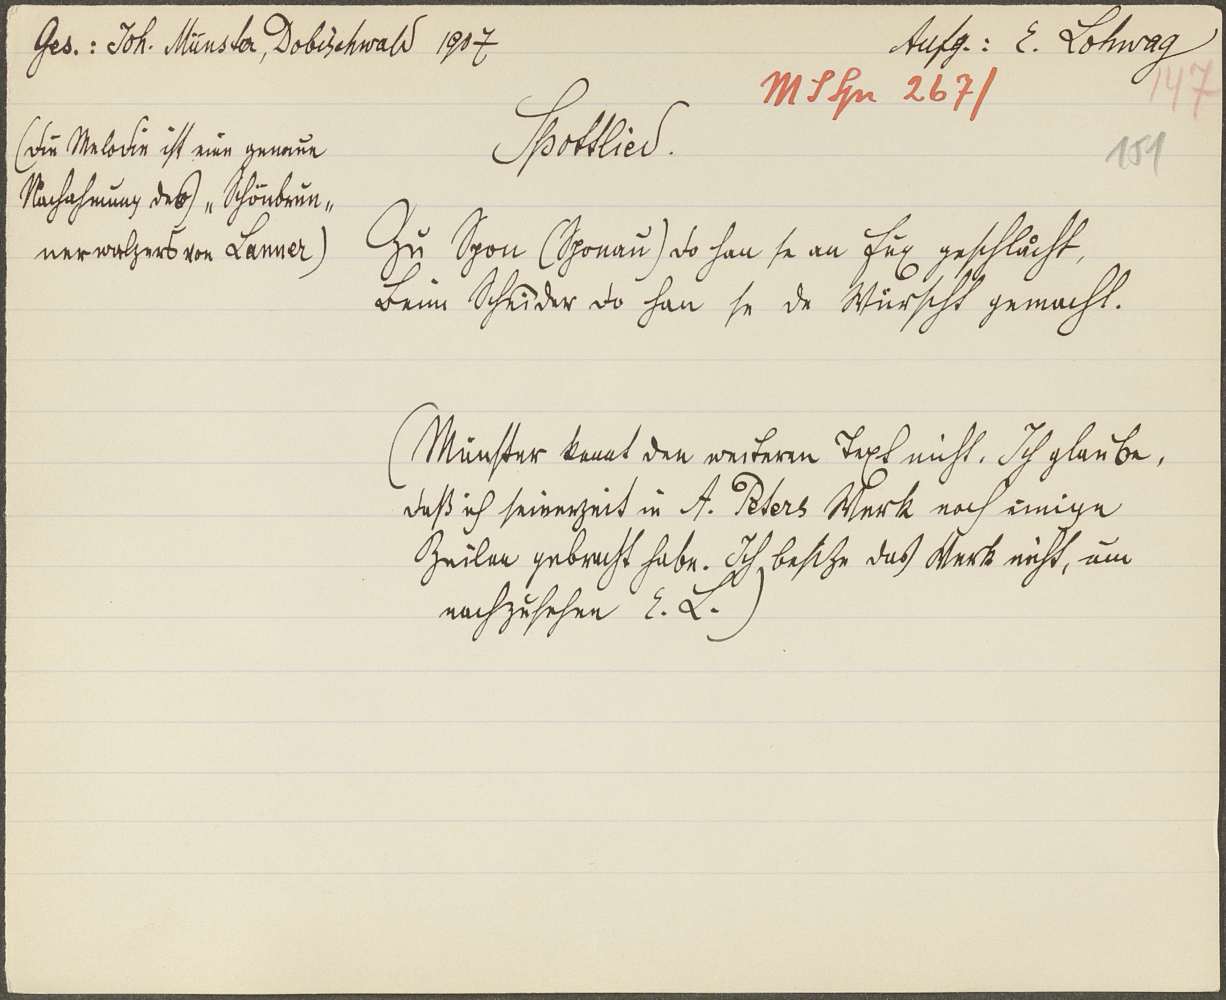 Ges.: Joh. Münster, Dobischwald 1907
Aufg.: E. Lohwag
MShn 267/
147
151
Spottlied.
(Die Melodie ist eine genaue
Nachahmung des „Schönbrun-
nerwalzers von Lanner)
Zu Spon (Sponau) do han se an Fux geschlåcht,
Beim Schneider do han se de Würscht gemacht.
(Münster kennt den weiteren Text nicht. Ich glaube,
daß ich seinerzeit in A. Peters Werk noch einige
Zeilen gebracht habe. Ich besitze das Werk nicht, um
nachzusehen E. L.)